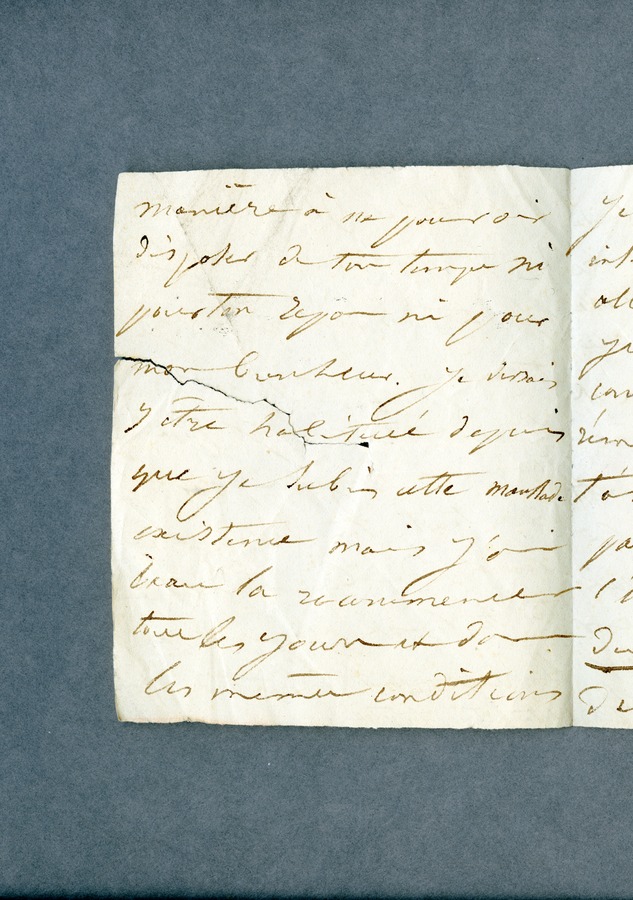 manière à ne pouvoir
disposer de ton temps ni
pour ton repos ni pour
mon bonheur. Je devrais
y être habituée depuis
que je subis cette maussade
existence mais j'ai
beau la recommencer
tous les jours et dans
les mêmes conditions